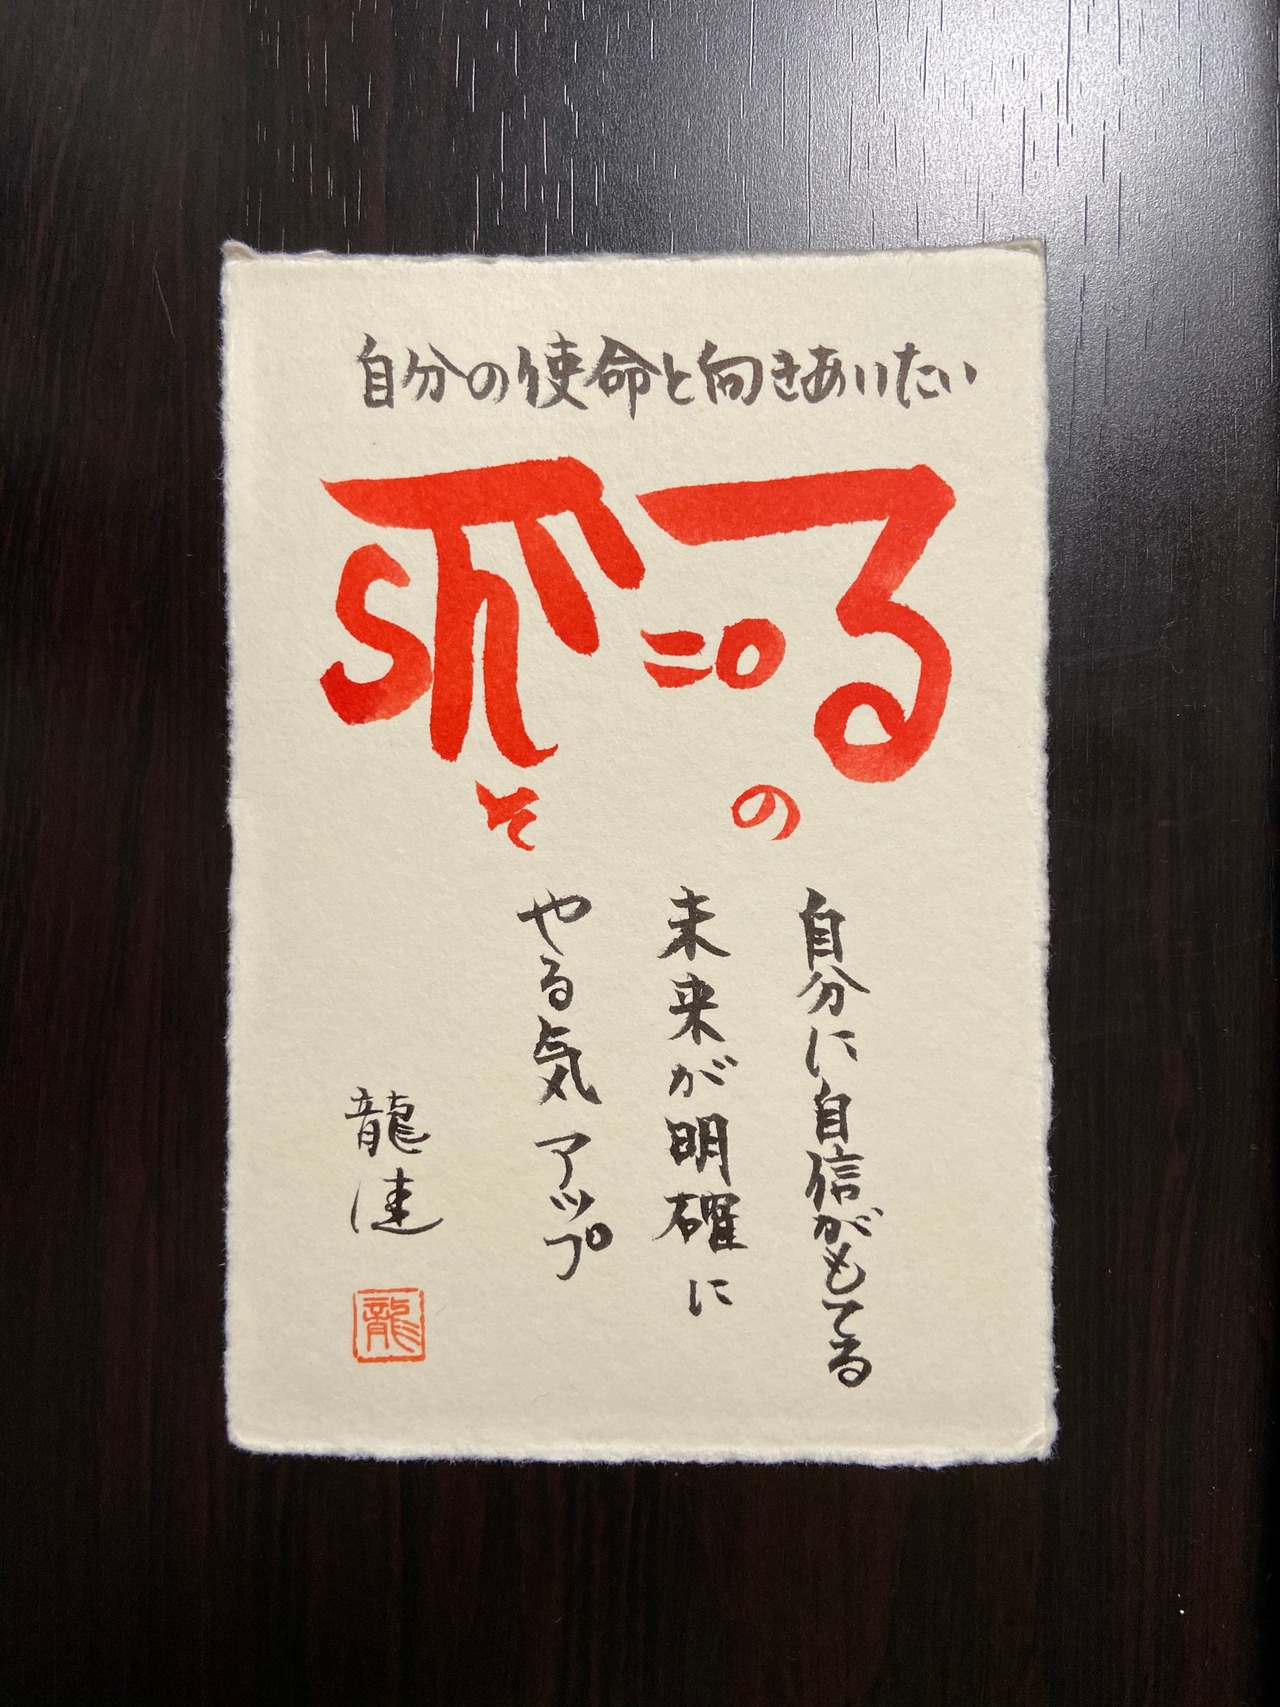 自分の使命と向きあいたい
そ の
自分に自信がもてる
未来が明確に
やる気アップ
龍
龍